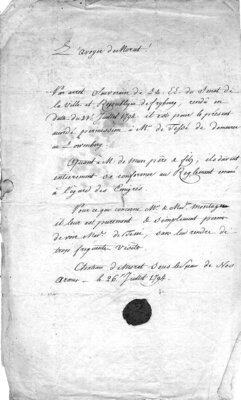 L'avoyer de Morat!
Par arret Souverain de LL. EE. du Senat de
la Ville et Republique de Frybourg, rendu en
date du 24. Juillet 1794. il est pour le présent
accordé permission à Mde. de Tessé de demeurer
à Lowenberg.
Quant à M. de mun père & fils, ils doivent
entierement se conformer au Reglement émané
à l'égard des Emigrés
Pour ce qui concerne Mr. & Mde. montagu
il leur est purement & Simplement permis
de voir Mde. de Tessé, sans lui rendre de
trop frequentes visites.
Chateau de Morat Sous le Sceau de Nos
Armes le 26. Juillet 1794.